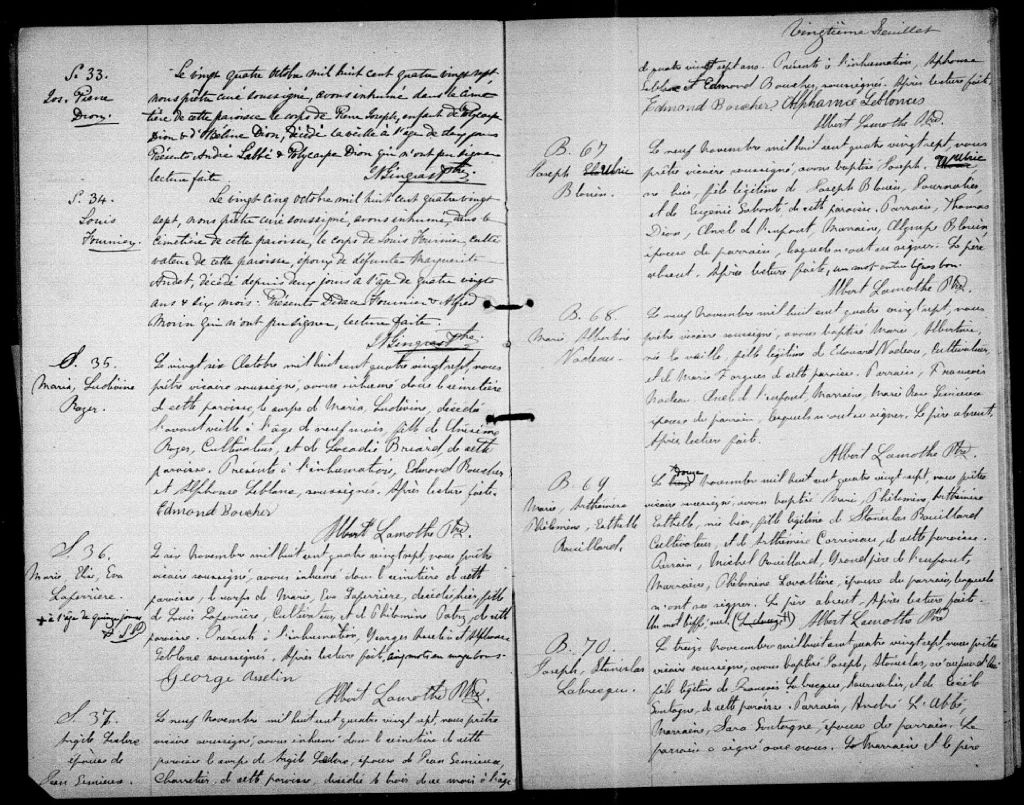 S. 33.
Jos. Pierre
Dion.
Le vingt quatre octobre mil huit cent quatre vingt sept
nous prêtre curé soussigné, avons inhumé dans le cime
tière de cette paroisse le corps de Pierre Joseph, enfant de Polycarpe
Dion & d'Hélène Dion, décédé la veille à l'âge de dix jours
Présents André Labbé & Polycarpe Dion qui n'ont pu signer
lecture faite.
N Gingras Ptre.
S. 34.
Louis
Fournier.
Le vingt cinq octobre mil huit cent quatre vingt
sept, nous prêtre curé soussigné, avons inhumé, dans le
cimetière de cette paroisse, le corps de Louis Fournier, culti
vateur de cette paroisse, époux de défunte Marguerite
Audet, décédé depuis deux jours à l'âge de quatre vingts
ans & six mois. Présents Fournier & Alfred
Morin qui n'ont pu signer, lecture faite.
N Gingras Ptre.
S. 35.
Marie, Ludivine
Roger.
Le vingt six Octobre mil huit cent quatre vingt sept, nous
prêtre vicaire soussigné, avons inhumé dans le cimetière
de cette paroisse, le corps de Maria, Ludivine, décédée
l'avant veille à l'âge de neuf mois, fille de Onésime
Roger, Cultivateur, et de Léocadie Briard, de cette
paroisse. Présents à l'inhumation, Edmond Boucher
et Alphonse Leblanc, soussignés. Après lecture faite.
Edmond Boucher
Albert Lamothe Ptre.
S. 36.
Marie, Elie, Eva
Laferrière.
+ à l'âge de quinze jours
Le six Novembre mil huit cent quatre vingt sept, nous prêtre
vicaire soussigné, avons inhumé dans le cimetière de cette
paroisse, le corps de Marie, Eva Laferrière, décédée hier, fille
de Louis Laferrière, Cultivateur, et de Philomène Patry, de cette
paroisse. Présents à l'inhumation, Georges Asselin et Alphonse
Leblanc soussignés. Après lecture faite, cinq mots en marge bons.
George Asselin
Albert Lamothe Ptre.
S. 37.
épouse de
Jean Lemieux.
Le neuf Novembre mil huit cent quatre vingt sept, nous prêtre
vicaire soussigné, avons inhumé dans le cimetière de cette
paroisse le corps de Leclerc, épouse de Jean Lemieux,
Charretier, de cette paroisse, décédée le trois de ce mois à l'âge
Vingtième Feuillet
de quatre vingt sept ans. Présents à l'inhumation, Alphonse
Leblanc et Edmond Boucher, soussignés. Après lecture faite.
Edmond Boucher Alphonse Leblonc
Albert Lamothe Ptre.
B. 67
Joseph Ulric
Blouin.
Le neuf Novembre mil huit cent quatre vingt sept, nous
prêtre vicaire soussigné, avons baptisé Joseph, Ulric
né hier, fils légitime de Joseph Blouin, Journalier,
et de Eugénie Labonté de cette paroisse. Parrain, Thomas
Dion, Oncle de l'enfant, Marraine, Olympe Blouin,
épouse du parrain, lesquels n'ont su signer. Le père
absent. Après lecture faite, un mot entre lignes bon.
Albert Lamothe Ptre.
B. 68.
Marie Albertine
Nadeau.
Le neuf Novembre mil huit cent quatre vingt sept, nous
prêtre vicaire soussigné, avons baptisé Marie, Albertine,
née la veille, fille légitime de Edouard Nadeau, Cultivateur,
et de Marie Forgues de cette paroisse. Parrain, François
Nadeau Oncle de l'enfant, Marraine, Marie Rose Lemieux
épouse du parrain, lesquels n'ont su signer. Le père absent.
Après lecture faite.
Albert Lamothe Ptre.
B. 69
Marie, Arthémise
Philomène, Esthelle
Rouillard.
Le douze Novembre mil huit cent quatre vingt sept, nous prêtre
vicaire soussigné, avons baptisé Marie, Philomène, Arthémise
Esthelle, née hier, fille légitime de Stanislas Rouillard
Cultivateur, et de Arthémise Corriveau, de cette paroisse.
Parrain, Michel Rouillard, Grand père de l'enfant,
Marraine, Philomène Lavallière, épouse du parrain, lesquels
n'ont su signer. Le père absent. Après lecture faite.
Un mot biffé nul. Albert Lamothe Ptre
B. 70.
Joseph, Stanislas
Labrecque.
Le treize Novembre mil huit cent quatre vingt sept, nous prêtre
vicaire soussigné, avons baptisé Joseph, Stanislas, né aujourd'hui
fils légitime de François Labrecque, Journalier, et de Cécile
Goulagne, de cette paroisse. Parrain, André L'Abbé,
Marraine, Sara épouse du parrain. Le
parrain a signé avec nous. La Marraine et le père